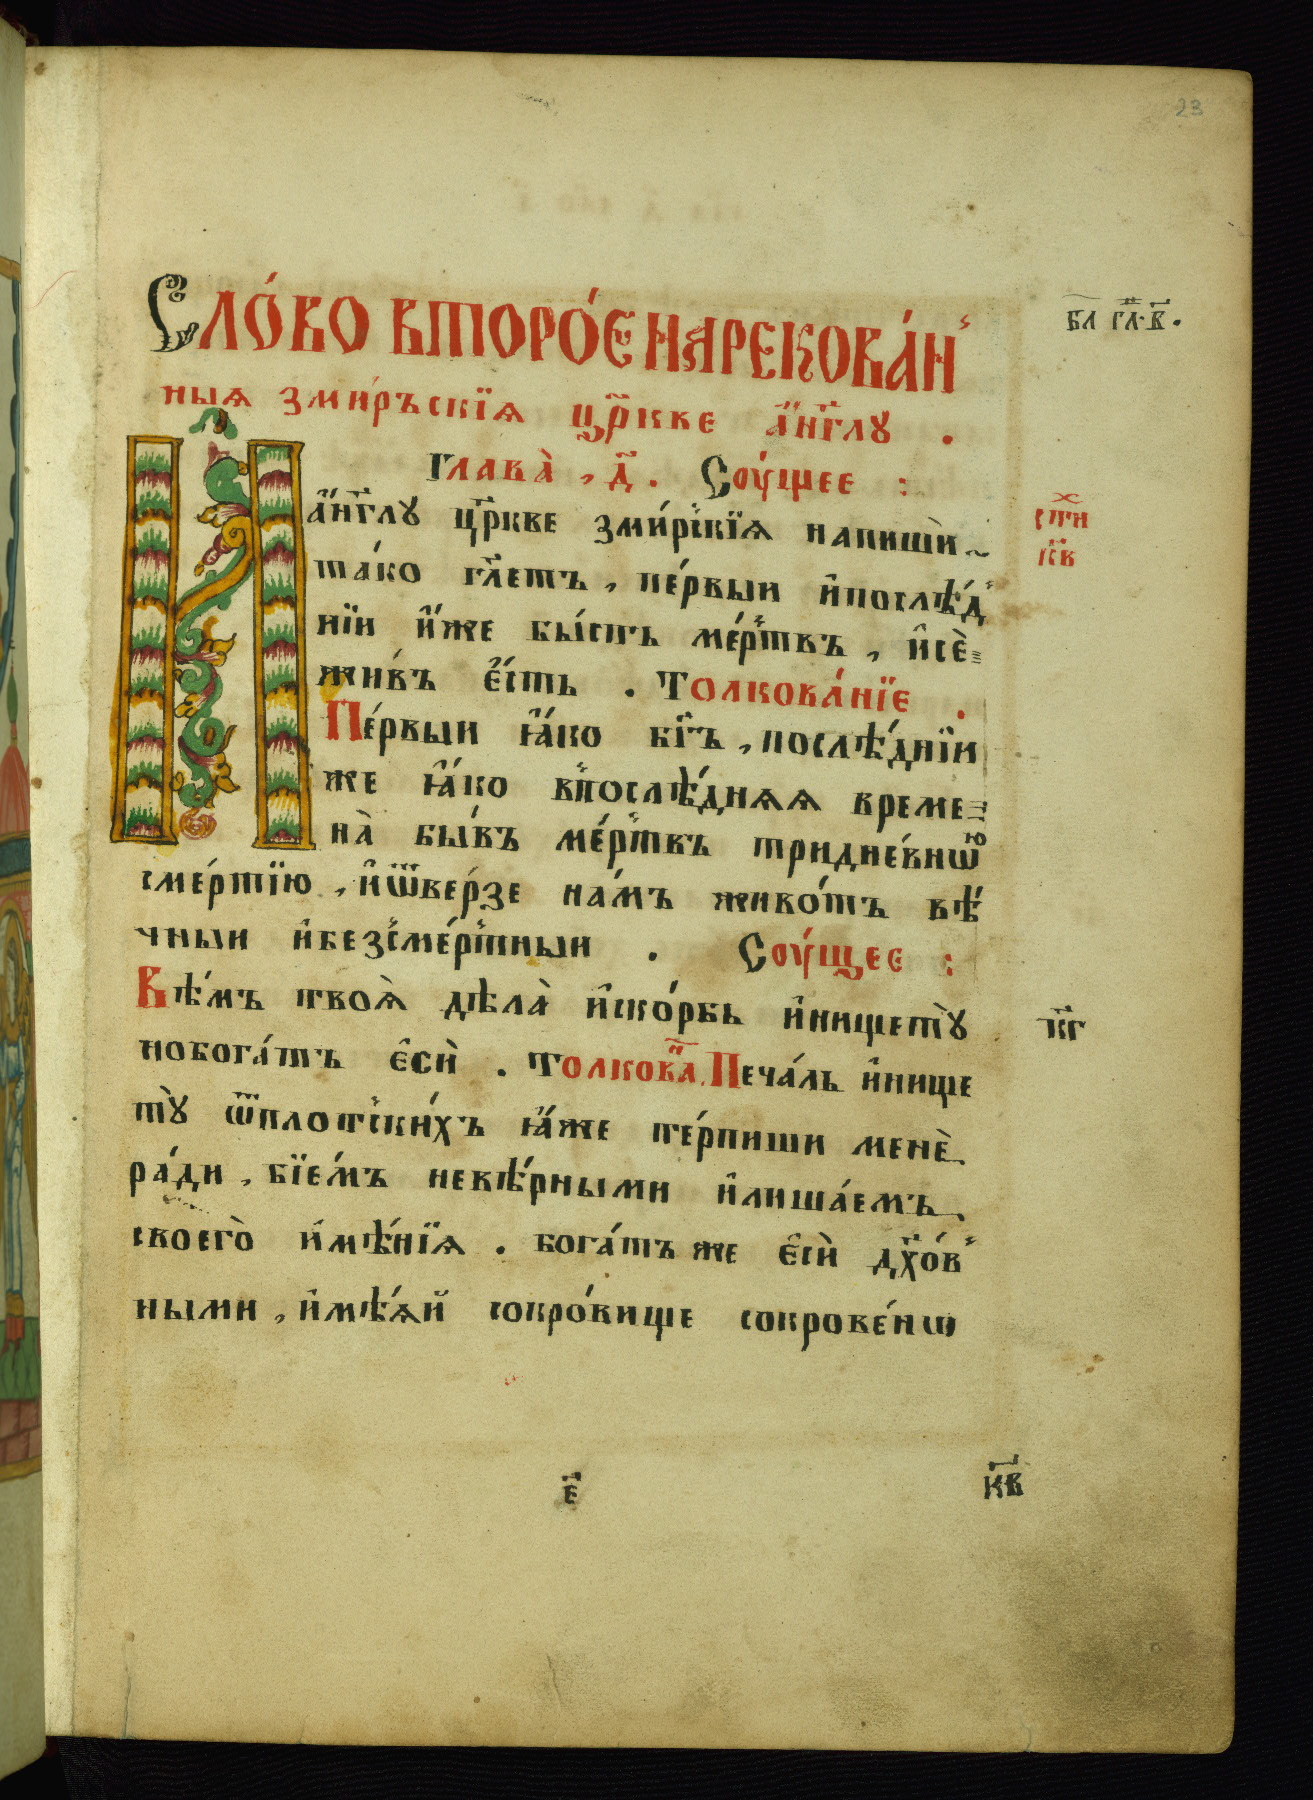 23
Сло́во второ́е нарекова́н
ныя змиръскїѧ цр҃кве а҆́нг҃лꙋ .
бл гл҃ в҃ .
Глава̀ , д҃ . Соу́щее :
И а҆́нг҃лꙋ цр҃кве зми́рскїѧ напишѝ
стн
кв
та́ко гл҃етъ , пе́рвыи и҆послѣ́д
нїи и҆́же бы́сть ме́ртвъ , и҆сѐ
жи́въ є҆́сть . Толкова́нїе .
Пе́рвыи ꙗ҆́ко бг҃ъ , послѣ́днїи
же ꙗ҆́ко впослѣ́дняѧ време
на̀ бы́въ ме́ртвъ тридне́вною
сме́ртїю , и҆ѿве́рзе на́мъ живо́тъ вѣ́
чныи и҆безсме́ртныи . Соу́щее :
Вѣ́мъ твоѧ̀ дѣла̀ и҆ско́рбь и҆нищетꙋ̀
кг҃
нобога́тъ є҆сѝ . Толкова Печа́ль и҆нище
тꙋ̀ ѿплотски́хъ ꙗ҆́же те́рпиши менѐ
ра́ди , бїе́мъ невѣ́рными и҆лиша́емъ
своего̀ и҆мѣ́нїѧ . бога́тъ же є҆сѝ дх҃о́в
ными , и҆мѣ́ѧй сокро́вище сокрове́нѡ
е҃
кв҃